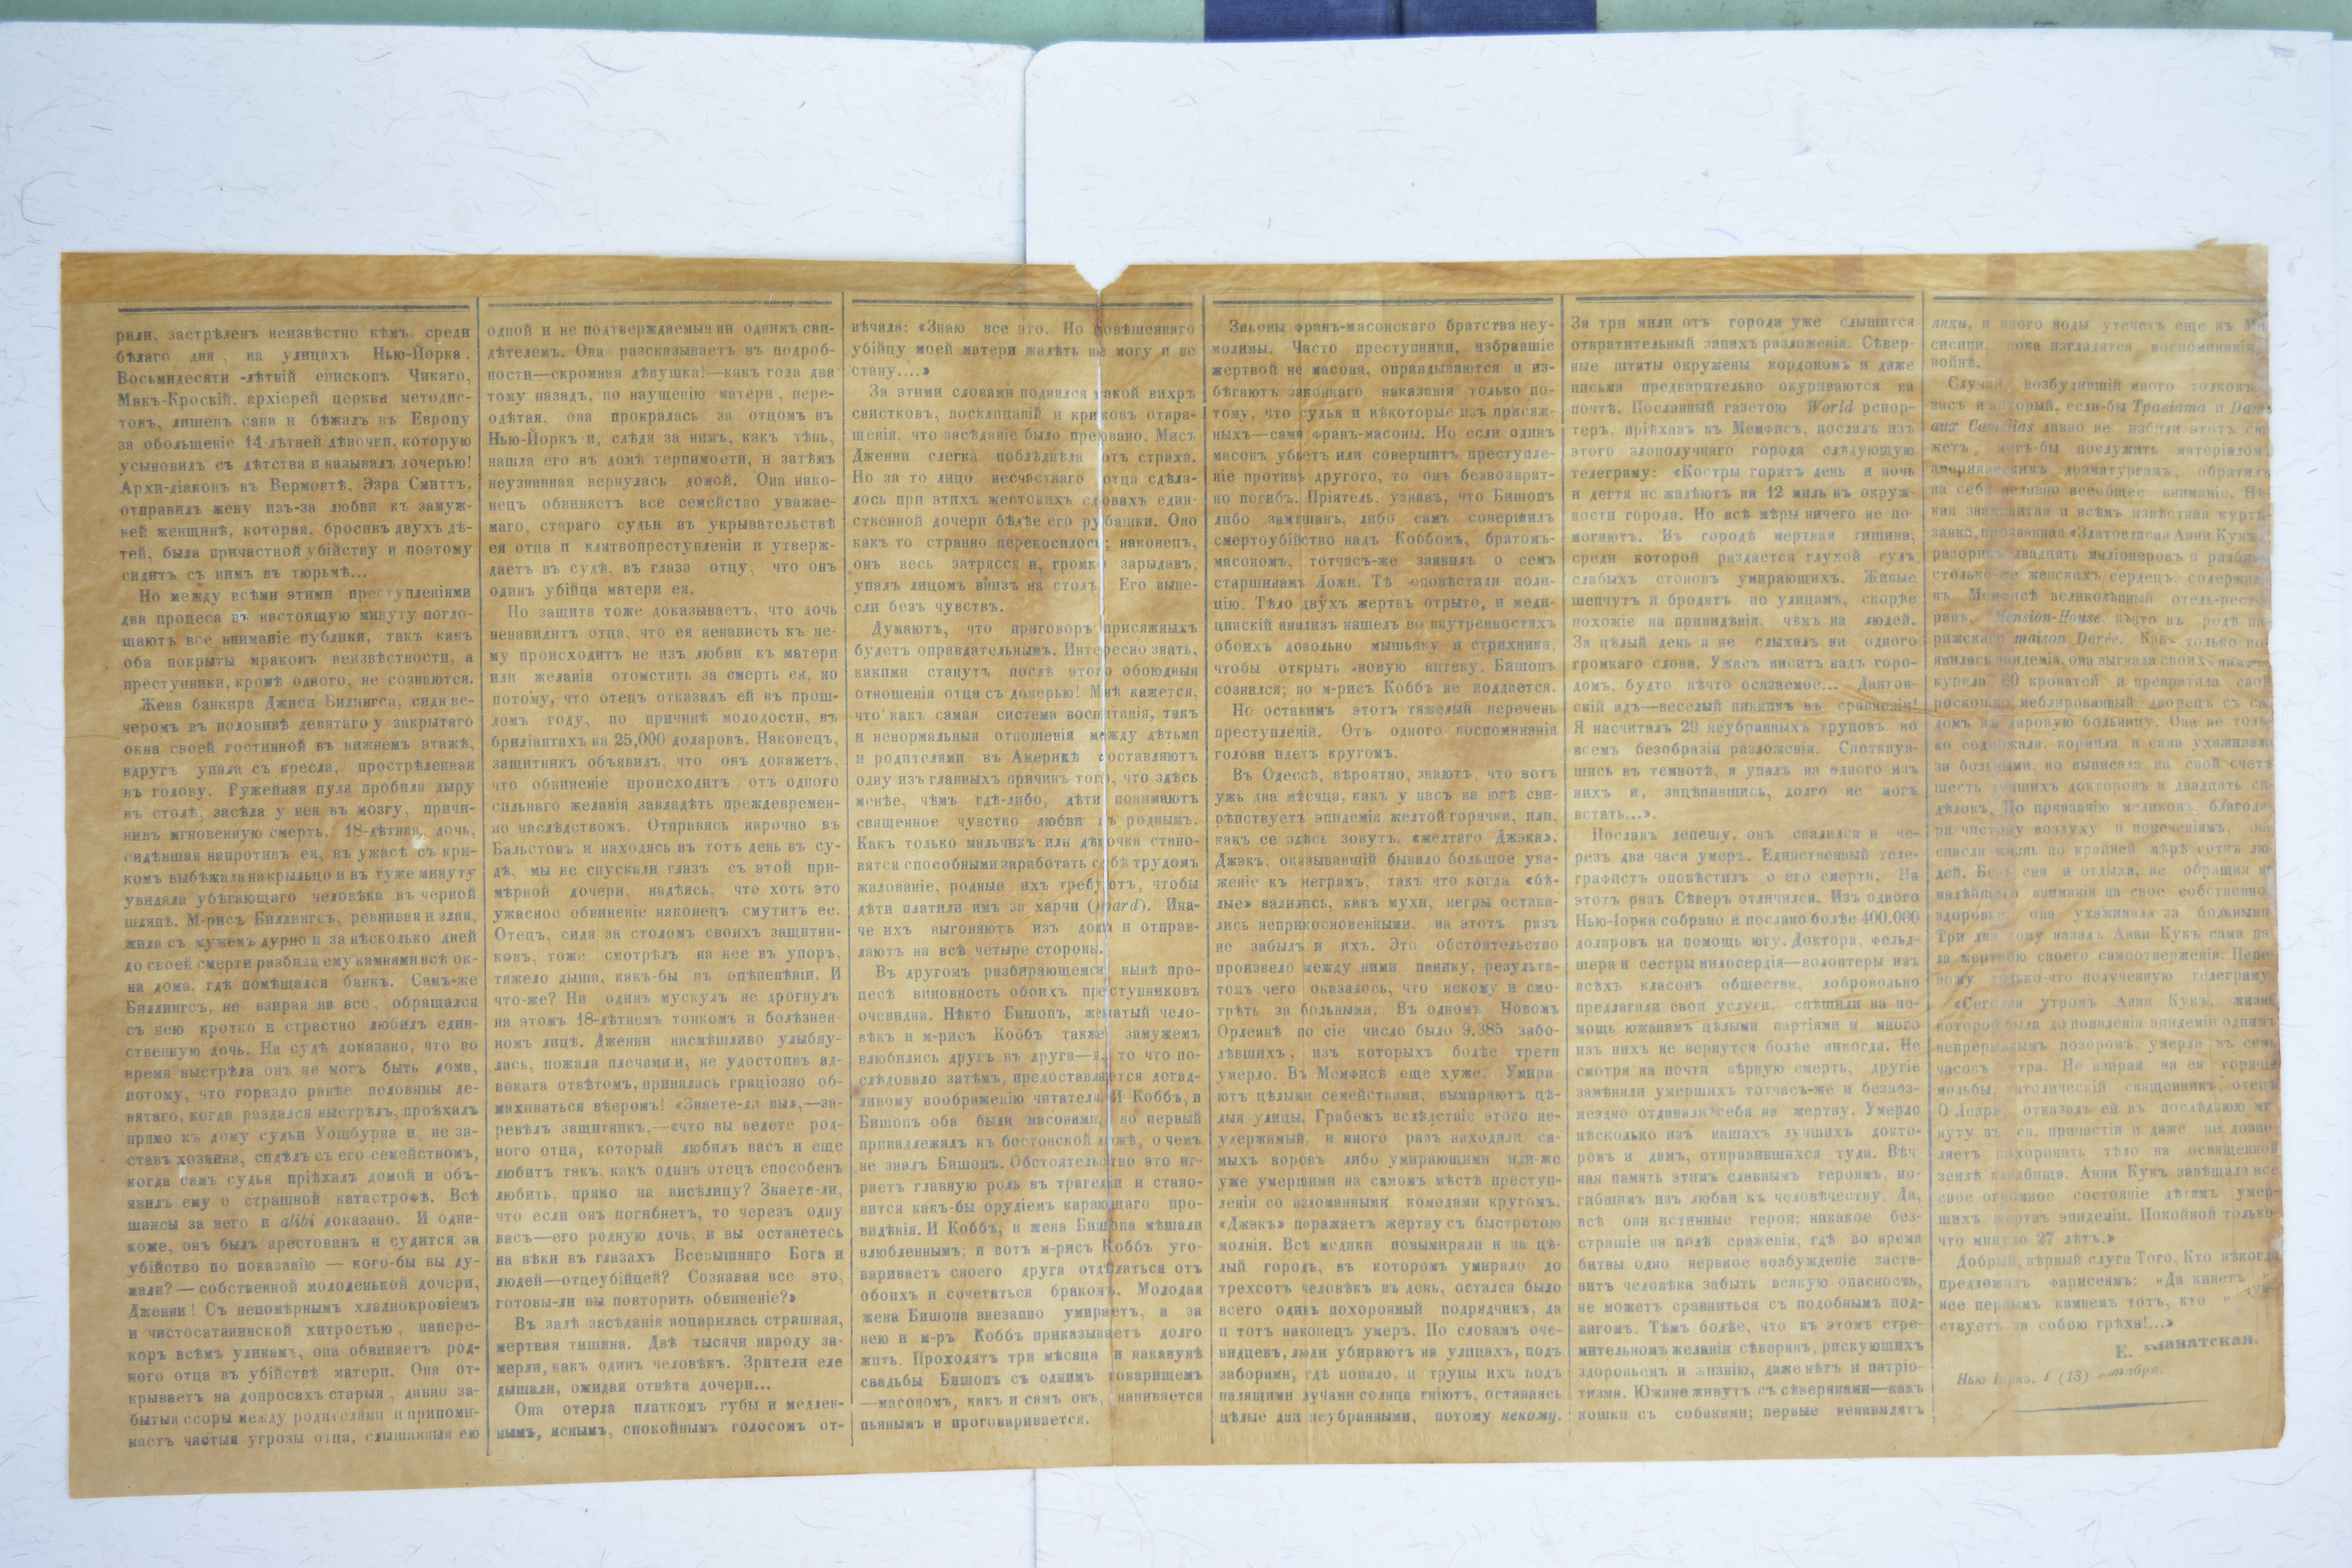 рали, застрѣленъ неизвѣстно кѣмъ, среди
бѣлаго дня, на улицахъ Нью-Йорка.
Восьмидесяти-лѣтній епископъ Чикаго,
Макъ-Кроскій, архіерей церкви методис-
товъ, лишенъ сана и бѣжалъ въ Европу
за обольщеніе 14-лѣтней дѣвочки, которую
усыновилъ съ дѣтства и называлъ дочерью!
Архи-діаконъ въ Вермонтѣ, Эзра Смиттъ,
отправилъ жену изъ-за любви къ замуж-
ней женщинѣ, которая, бросивъ двухъ дѣ-
тей, была причастной убійству и поэтому
сидитъ съ нимъ въ тюрьмѣ...
Но между всѣми этими преступленіями
два процеса въ настоящую минуту погло-
щаютъ все вниманіе публики, такъ какъ
оба покрыты мракомъ неизвѣстности, а
преступники, кромѣ одного, не сознаются.
Жена банкира Джиси Биллингса, сидя ве-
черомъ въ половинѣ девятаго у закрытаго
окна своей гостинной въ нижнемъ этажѣ,
вдругъ упала съ кресла, прострѣленная
въ голову. Ружейная пуля пробила дыру
въ столѣ, засѣла у нея въ мозгу, причи-
нивъ мгновенную смерть. 18-лѣтняя дочь,
сидѣвшая напротивъ ея, въ ужасѣ съ кри-
комъ выбѣжала на крыльцо и въ туже минуту
увидала убѣгающаго человѣка въ черной
шляпѣ. М-рисъ Биллингсъ, ревнивая и злая,
жила съ мужемъ дурно и за нѣсколько дней
до своей смерти разбила ему камнями всѣ ок-
на дома, гдѣ помѣщался банкъ. Самъ-же
Биллингсъ, не взирая на все, обращался
съ нею кротко и страстно любилъ един-
ственную дочь. На судѣ доказано, что во
время выстрѣла онъ не могъ быть дома,
потому, что гораздо ранѣе половины де-
вятаго, когда раздался выстрѣлъ, проѣхалъ
прямо къ дому судьи Уошбурна и, не за-
ставъ хозяина, сидѣлъ съ его семействомъ,
когда самъ судья пріѣхалъ домой и объ-
явилъ ему о страшной катастрофѣ. Всѣ
шансы за него и alibi доказано. И одна-
коже, онъ былъ арестованъ и судится за
убійство по показанію — кого-бы вы ду-
мали? — собственной молоденькой дочери,
Дженни! Съ непомѣрнымъ хладнокровіемъ
и чистосатанинской хитростью, напере-
коръ всѣмъ уликамъ, она обвиняетъ род-
ного отца въ убійствѣ матери. Она от-
крываетъ на допросахъ старыя, давно за-
бытыя ссоры между родителями и припоми-
наетъ частыя угрозы отца, слышанныя ею
одной и не подтверждаемыя ни однимъ сви-
дѣтелемъ. Она разсказываетъ въ подроб-
ности—скромная дѣвушка!—какъ года два
тому назадъ, по наущенію матери, пере-
одѣтая, она прокралась за отцомъ въ
Нью-Йоркъ и, слѣдя за нимъ, какъ тѣнь,
нашла его въ домѣ терпимости, и затѣмъ
неузнанная вернулась домой. Она нако-
нецъ обвиняетъ все семейство уважае-
маго, стараго судьи въ укрывательствѣ
ея отца и клятвопреступленіи и утверж-
даетъ въ судѣ, въ глаза отцу, что онъ
одинъ убійца матери ея.
Но защита тоже доказываетъ, что дочь
ненавидитъ отца, что ея ненависть къ не-
му происходитъ не изъ любви къ матери
или желанія отомстить за смерть ея, но
потому, что отецъ отказалъ ей въ прош-
ломъ году, по причинѣ молодости, въ
бриліантахъ на 25,000 доларовъ. Наконецъ,
защитникъ объявилъ, что онъ докажетъ,
что обвиненіе происходитъ отъ одного
сильнаго желанія завладѣть преждевремен-
но наслѣдствомъ. Отправясь нарочно въ
Бальстонъ и находясь въ тотъ день въ су-
дѣ, мы не спускали глазъ съ этой при-
мѣрной дочери, надѣясь, что хоть это
ужасное обвиненіе наконецъ смутитъ ее.
Отецъ, сидя за столомъ своихъ защитни-
ковъ, тоже смотрѣлъ на нее въ упоръ,
тяжело дыша, какъ-бы въ оцѣпенѣніи. И
что-же? Ни одинъ мускулъ не дрогнулъ
на этомъ 18-лѣтнемъ тонкомъ и болѣзнен-
номъ лицѣ. Дженни насмѣшливо улыбну-
лась, пожала плечами и, не удостоивъ ад-
воката отвѣтомъ, принялась граціозно об-
махиваться вѣеромъ! «Знаете-ли вы»,—за-
ревѣлъ защитникъ,—«что вы ведете род-
ного отца, который любилъ васъ и еще
любитъ такъ, какъ одинъ отецъ способенъ
любить, прямо на висѣлицу? Знаете-ли,
что если онъ погибнетъ, то черезъ одну
васъ—его родную дочь, и вы останетесь
на вѣки въ глазахъ Всевышняго Бога и
людей—отцеубійцей? Сознавая все это,
готовы-ли вы повторить обвиненіе?»
Въ залѣ засѣданія воцарилась страшная,
мертвая тишина. Двѣ тысячи народу за-
мерли, какъ одинъ человѣкъ. Зрители еле
дышали, ожидая отвѣта дочери...
Она отерла платкомъ губы и медлен-
нымъ, яснымъ, спокойнымъ голосомъ от-
вѣчала: «Знаю все это. Но повѣшеннаго
убійцу моей матери жалѣть не могу и не
стану....»
За этими словами поднялся такой вихръ
свистковъ, восклицаній и криковъ отвра-
щенія, что засѣданіе было прервано. Мисъ
Дженни слегка поблѣднѣла отъ страха.
Но за то лицо несчастнаго отца сдѣла-
лось при этихъ жестокихъ словахъ един-
ственной дочери бѣлѣе его рубашки. Оно
какъ то странно перекосилось; наконецъ,
онъ весь затрясся и, громко зарыдавъ,
упалъ лицомъ внизъ на столъ. Его выне-
сли безъ чувствъ.
Думаютъ, что приговоръ присяжныхъ
будетъ оправдательнымъ. Интересно знать,
какими станутъ послѣ этого обоюдныя
отношенія отца съ дочерью! Мнѣ кажется,
что какъ самая система воспитанія, такъ
и ненормальныя отношенія между дѣтьми
и родителями въ Америкѣ составляютъ
одну изъ главныхъ причинъ того, что здѣсь
менѣе, чѣмъ гдѣ-либо, дѣти понимаютъ
священное чувство любви къ роднымъ.
Какъ только мальчикъ или дѣвочка стано-
вятся способными заработать себѣ трудомъ
жалованіе, родные ихъ требуютъ, чтобы
дѣти платили имъ за харчи (board). Ина-
че ихъ выгоняютъ изъ дома и отправ-
ляютъ на всѣ четыре стороны.
Въ другомъ разбирающемся нынѣ про-
цесѣ виновность обоихъ преступниковъ
очевидна. Нѣкто Бишопъ, женатый чело-
вѣкъ и м-рисъ Коббъ также замужемъ
влюбились другъ въ друга—и, то что по-
слѣдовало затѣмъ, предоставляется догад-
ливому воображенію читателя. И Коббъ, и
Бишопъ оба были масонами, но первый
принадлежалъ къ бостонской ложѣ, о чемъ
не зналъ Бишопъ. Обстоятельство это иг-
раетъ главную роль въ трагедіи и стано-
вится какъ-бы орудіемъ карающаго про-
видѣнія. И Коббъ, и жена Бишопа мѣшали
влюбленнымъ; и вотъ м-рисъ Коббъ уго-
вариваетъ своего друга отдѣлаться отъ
обоихъ и сочетаться бракомъ. Молодая
жена Бишопа внезапно умираетъ, а за
нею и м-ръ Коббъ приказываетъ долго
жить. Проходятъ три мѣсяца и наканунѣ
свадьбы Бишопъ съ однимъ товарищемъ
—масономъ, какъ и самъ онъ, напивается
пьянымъ и проговаривается.
Законы франъ-масонскаго братства неу-
молимы. Часто преступники, избравшіе
жертвой не масона, оправдываются и из-
бѣгаютъ законнаго наказанія только по-
тому, что судья и нѣкоторые изъ присяж-
ныхъ—сами франъ-масоны. Но если одинъ
масонъ убьетъ или совершитъ преступле-
ніе противъ другого, то онъ безвозврат-
но погибъ. Пріятель, узнавъ, что Бишопъ
либо замѣшанъ, либо самъ совершилъ
смертоубійство надъ Коббомъ, братомъ-
масономъ, тотчасъ-же заявилъ о семъ
старшинамъ Ложи. Тѣ оповѣстили поли-
цію. Тѣло двухъ жертвъ отрыто, и меди-
цинскій анализъ нашелъ во внутренностяхъ
обоихъ довольно мышьяку и стрихнина,
чтобы открыть новую аптеку. Бишопъ
сознался; но м-рисъ Коббъ не поддается.
Но оставимъ этотъ тяжелый перечень
преступленій. Отъ одного воспоминанія
голова идетъ кругомъ.
Въ Одессѣ, вѣроятно, знаютъ, что вотъ
ужь два мѣсяца, какъ у насъ на югѣ сви-
рѣпствуетъ эпидемія желтой горячки, или,
какъ ее здѣсь зовутъ, «желтаго Джэка».
Джэкъ, оказывавшій бывало большое ува-
женіе къ неграмъ, такъ что когда «бѣ-
лые» валились, какъ мухи, негры остава-
лись неприкосновенными, на этотъ разъ
не забылъ и ихъ. Это обстоятельство
произвело между ними панику, результа-
томъ чего оказалось, что некому и смо-
трѣть за больными. Въ одномъ Новомъ
Орлеанѣ по сіе число было 9,385 забо-
лѣвшихъ, изъ которыхъ болѣе трети
умерло. Въ Мемфисѣ еще хуже. Умира-
ютъ цѣлыми семействами, вымираютъ цѣ-
лыя улицы. Грабежъ вслѣдствіе этого не-
удержимый, и много разъ находили са-
мыхъ воровъ либо умирающими или-же
уже умершими на самомъ мѣстѣ преступ-
ленія со взломанными комодами кругомъ.
«Джэкъ» поражаетъ жертву съ быстротою
молніи. Всѣ медики повымирали и на цѣ-
лый городъ, въ которомъ умирало до
трехсотъ человѣкъ въ день, остался было
всего одинъ похоронный подрядчикъ, да
и тотъ наконецъ умеръ. По словамъ оче-
видцевъ, люди убираютъ на улицахъ, подъ
заборами, гдѣ попало, и трупы ихъ подъ
палящими лучами солнца гніютъ, оставаясь
цѣлые дни неубранными, потому некому.
За три мили отъ города уже слышится
отвратительный запахъ разложенія. Сѣвер-
ные штаты окружены кордономъ и даже
письма предварительно окуриваются на
почтѣ. Посланный газетою World репор-
теръ, пріѣхавъ къ Мемфисъ, послалъ изъ
этого злополучнаго города слѣдующую
телеграму: «Костры горятъ день и ночь
и дегтя не жалѣютъ на 12 миль въ окруж-
ности города. Но всѣ мѣры ничего не по-
могаютъ. Въ городѣ мертвая тишина,
среди которой раздается глухой гулъ
слабыхъ стоновъ умирающихъ. Живые
шепчутъ и бродятъ по улицамъ, скорѣе
похожіе на привидѣнія, чѣмъ на людей.
За цѣлый день я не слыхалъ ни одного
громкаго слова. Ужасъ виситъ надъ горо-
домъ, будто нѣчто осязаемое... Дантов-
скій адъ—веселый пикникъ въ сравненіи!
Я насчиталъ 29 неубранныхъ труповъ во
всемъ безобразіи разложенія. Споткнув-
шись въ темнотѣ, я упалъ на одного изъ
нихъ и, зацѣпившись, долго не могъ
встать...».
Пославъ депешу, онъ свалился и че-
резъ два часа умеръ. Единственный теле-
графистъ оповѣстилъ о его смерти. На
этотъ разъ Сѣверъ отличился. Изъ одного
Нью-Іорка собрано и послано болѣе 400,000
доларовъ на помощь югу. Доктора, фельд-
шера и сестры милосердія—волонтеры изъ
всѣхъ класовъ общества, добровольно
предлагали свои услуги, спѣшили на по-
мощь южанамъ цѣлыми партіями и много
изъ нихъ не вернутся болѣе никогда. Не
смотря на почти вѣрную смерть, другіе
замѣняли умершихъ тотчасъ-же и безвоз-
мездно отдавали себя на жертву. Умерло
нѣсколько изъ нашихъ лучшихъ докто-
ровъ и дамъ, отправившихся туда. Вѣч-
ная память этимъ славнымъ героямъ, по-
гибшимъ изъ любви къ человѣчеству. Да,
всѣ они истинные герои; никакое без-
страшіе на полѣ сраженія, гдѣ во время
битвы одно нервное возбужденіе заста-
витъ человѣка забыть всякую опасность,
не можетъ сравниться съ подобнымъ под-
вигомъ. Тѣмъ болѣе, что въ этомъ стре-
мительномъ желаніи сѣверянъ, рискующихъ
здоровьемъ и жизнію, даже нѣтъ и патріо-
тизма. Южане живутъ съ сѣверянами—какъ
кошки съ собаками; первые ненавидятъ
янки, и много воды утечетъ еще въ Ми-
сисипи, пока изгладится воспоминаніе
войнѣ.
Случай, возбудившій много толковъ
насъ и который, если-бы Травіата и Dame
aux Camélias давно не избили этотъ сю-
жетъ, могъ-бы послужить матеріаломъ
американскимъ драматургамъ, обратилъ
на себя недавно всеобщее вниманіе. Нѣ-
кая знаменитая и всѣмъ извѣстная курти-
занка, прозванная «Златовласая Анни Кукъ»,
разоривъ двадцать миліонеровъ и разбивъ
столько-же женскихъ сердецъ, содержала
въ Мемфисѣ великолѣпный отель-ресто-
ранъ, Mension-House, нѣчто въ родѣ па-
рижскаго maison Dorée. Какъ только по-
явилась эпидемія, она выгнала своихъ
купила 60 кроватей и превратила свой
роскошно меблированный дворецъ съ са-
домъ въ даровую больницу. Она не толь-
ко содержала, кормила и сама ухаживала
за больными, но выписала на свой счетъ
шесть лучшихъ докторовъ и двадцать си-
дѣлокъ. По показанію медиковъ, благода-
ря чистому воздуху и попеченіямъ, она
спасла жизнь по крайней мѣрѣ сотнѣ лю-
дей. Безъ сна и отдыха, не обращая ни
малѣйшаго вниманія на свое собственное
здоровье, она ухаживала за больными.
Три дня тому назадъ Анни Кукъ сама па-
ла жертвою своего самоотверженія. Пере-
вожу только-что полученную телеграму:
«Сегодня утромъ Анни Кукъ, жизнь
которой была до появленія эпидеміи однимъ
непрерывнымъ позоромъ, умерла въ семь
часовъ утра. Не взирая на ея горячія
мольбы, католическій священникъ, отецъ
О'Леари, отказалъ ей въ послѣднюю ми-
нуту въ св. причастіи и даже не дозво-
ляетъ похоронить тѣло на освященной
землѣ кладбища. Анни Кукъ завѣщала все
свое огромное состояніе дѣтямъ умер-
шихъ жертвъ эпидеміи. Покойной только-
что минуло 27 лѣтъ.»
Добрый, вѣрный слуга Того, Кто нѣкогда
предложилъ фарисеямъ: «Да кинетъ въ
нее первымъ камнемъ тотъ, кто
ствуетъ за собою грѣха!...»
Е. Блаватская.
Нью Іоркъ. 1 (13) октября.